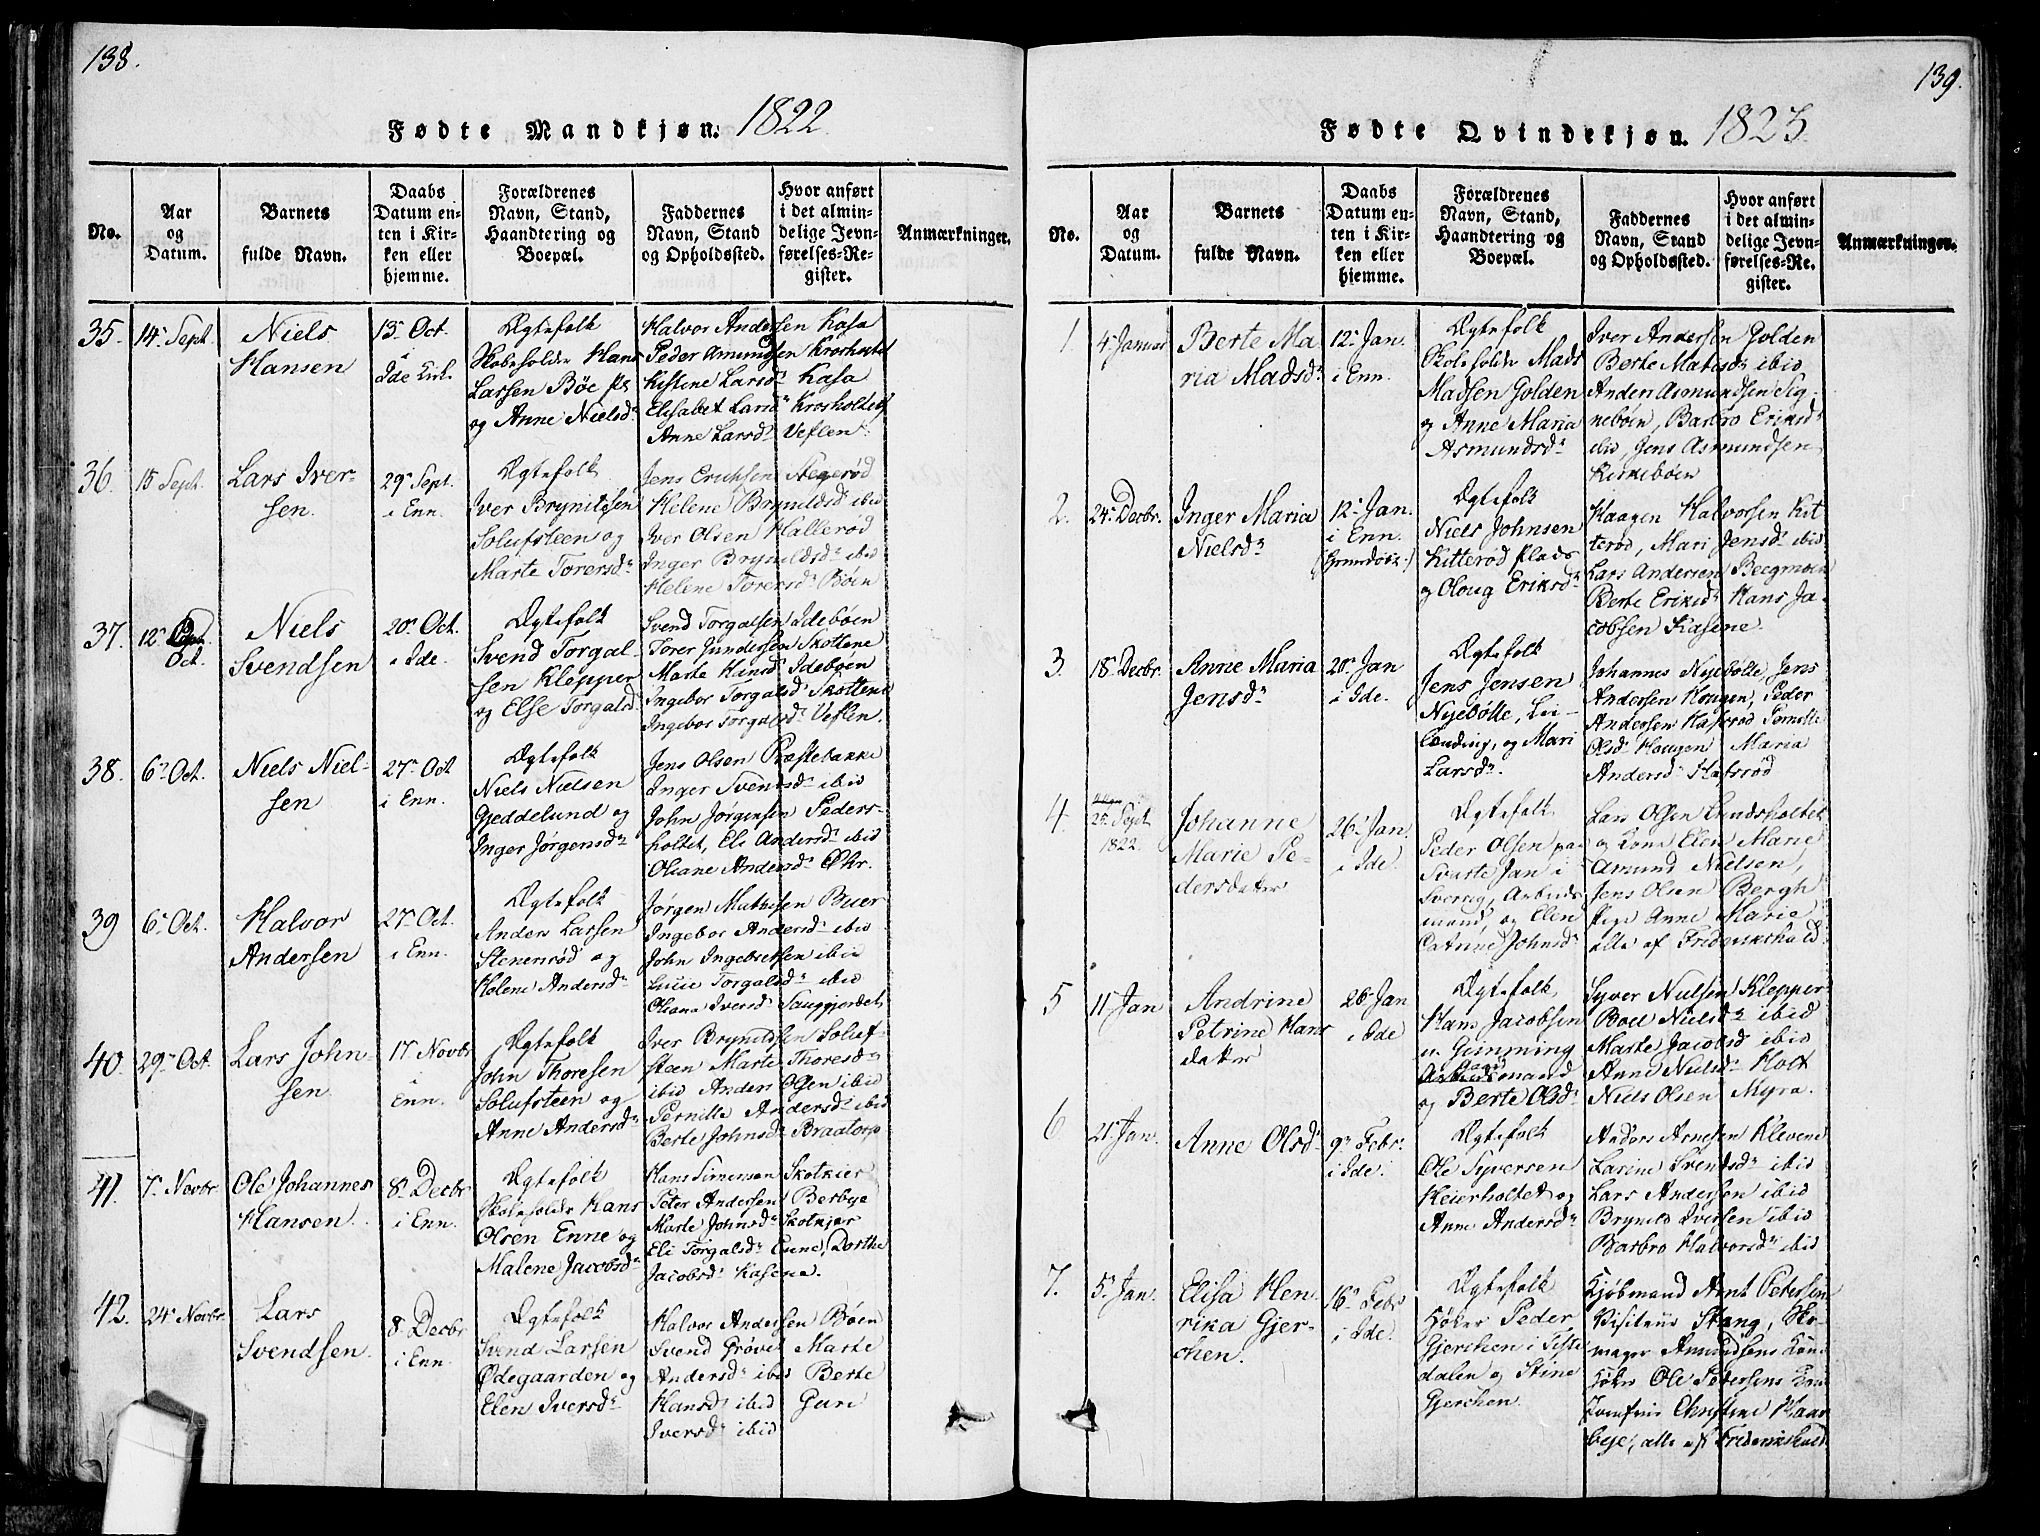 138.
Fødte Mandkjøn. 1822
No.
Aar
og
Datum.
Barnets
fulde Navn.
Daabs
Datum en-
ten i Kir-
ken eller
hjemme.
Forældrenes
Navn, Stand,
Haandtering og
Boepæl.
Faddernes
Navn, Stand
og Opholdssted.
Hvor anført
i det almin-
delige Jevn-
førelses-Re-
gister.
Anmærkninger.
35. 14 Sept.
Niels
Hansen
13 Oct.
i
Ide Kirk.
Ægtefolk
Skoleholder Hans
Larsen Böe Pl
og Anne Nielsd.
Halvor Andersen Kasa
Peder Amundsen Krosholtet
Kistine Larsd. Kasa
Elisabet Larsd. Krosholtet
Anne Larsd. Veflen
36. 15 Sept.
Lars Iver-
sen.
29 Sept.
i Enn.
Ægtefolk
Iver Brynildsen
Solufsteen og
Marte Torersd.
Jens Ericksen Hegerød
Helene Brynildsd. ibid
Iver Olsen Hallerød
Inger Brynildsd. ibid
Helene Torersd. Böen
37. 12
Oct.
Niels
Svendsen
20 Oct.
i Ide.
Ægtefolk
Svend Torgal-
sen Klepper
og Else Torgalsd
Svend Torgalsen Ideböen
Torer Gundersen Skottene
Marte Hansd. Ideböen
Ingebor Torgalsd. Skottene
Ingebor Torgalsd. Veflen.
38. 6 Oct.
Niels Niel-
sen
27 Oct
i Enn.
Ægtefolk
Niels Nielsen
Gjeddelund og
Inger Jörgensd.
Jens Olsen Præstebakke
Inger Svendsd. ibid
John Jörgensen Peders-
holtet, Eli Andersd. ibid
Oleane Andersd.
39 6 Oct.
Halvor
Andersen
27 Oct.
i Enn.
Ægtefolk
Anders Larsen
Stenerød og
Helene Andersd.
Jörgen Mathisen Buer
Ingebor Andersd. ibid
John Ingebretsen ibid
Lucie Torgalsd. ibid
Oleana Iversd. Sauggjerdet
40. 29 Oct.
Lars John-
sen
17 Novbr
i
Enn.
Ægtefolk
John Thoresen
Solufsteen og
Anne Andersd.
Iver Brynildsen Soluf-
steen Marte Thoresd.
ibid Anders Olsen ibid
Pernille Andersd. ibid
Berte Johnsd. Braatorp
41. 7 Novbr.
Ole Johannes
Hansen.
8 Decbr
i Enn.
Ægtefolk
Skoleholder Hans
Olsen Enne og
Malene Jacobsd.
Hans Simensen Skotkier
Peter Andersen Berbye
Marte Johnsd. Skotkjær
Eli Torgalsd. Enne, Dorthe
Jacobsd. Kasene.
42. 24 Novbr.
Lars
Svendsen.
8 Decbr
i Enn.
Ægtefolk
Svend Larsen
Ødegaarden og
Elen Iversd.
Halvor Andersen Böen
Svend Grövi Marte
Andersd. ibid Berte
Hansd. ibid Guri
Iversd. ibid
139.
Fødte Qvindekjøn. 1823.
No.
Aar
og
Datum.
Barnets
fulde Navn.
Daabs
Datum en-
ten i Kir-
ken eller
hjemme.
Forældrenes
Navn, Stand,
Haandtering og
Boepæl.
Faddernes
Navn, Stand
og Opholdssted.
Hvor anført
i det almin-
delige Jevn-
førelses-Re-
gister.
Anmærkninger.
1 4 Januar
Berte Ma
ria Madsd.
12 Jan.
i Enn.
Ægtefolk
Skoleholder Mads
Madsen Golden
og Anne Maria
Asmundsd.
Iver Andersen Golden
Berte Madsd. ibid
Anders Asmundsen Sig-
neböen, Barbro Eriksd.
ibid, Jens Asmundsen
Kirkeböen
2. 24 Decbr.
Inger Maria
Nielsd.
12 Jan.
i Enn.
Ægtefolk
Niels Johnsen
Kitterød Plads
og Oloug Eriksd.
Haagen Halvorsen Kit
terød, Mari Jensd. ibid
Lars Andersen Bergmoen
Berte Eriksd. Hans Ja-
cobsen Kasene.
3. 18 Decbr.
Anne Maria
Jensd.
20 Jan
i Ide.
Ægtefolk
Jens Jensen
Nyebölle, Lei-
lænding, og Mari
Larsd.
Johannes Nyebölle, Jens
Andersen Hougen, Peder
Andersen Hafsrød Pernille
Olsd. Hougen Maria
Andersd. Hafsrød
4. 25 Sept
1822.
Johanne
Marie Pe-
dersdatter
26 Jan.
i Ide.
Ægtefolk
Peder Olsen paa
Svarte Jan i
Sverrig, Arbeids
mand, og Elen
Catrine Johnsd.
Lars Olsen Lundsholtet
og Kone Elen Marie
Amund Nielsen,
Jens Olsen Bergh
Pige Anne Marie
alle af Friderikshald
5 11 Jan
Andrine
Petrine Hans
datter
26 Jan
i Ide
Ægtefolk
Hans Jacobsen
u. Gimming
mand
og Berte Olsd.
Syver Nielsen Klepper
Boel Nielsd. ibid
Marte Jacobsd ibid
Anne Nielsd. Holt
Niels Olsen Myra.
6. 21 Jan.
Anne Olsd.
9 Febr.
i Ide
Ægtefolk
Ole Syversen
Heierholtet og
Anne Andersd.
Anders Arnesen Klevene
Larine Svendsd. ibid
Lars Andersen ibid
Brynild Iversen ibid
Barbro Halvorsd. ibid
7. 5 Jan.
Elisa Hen
rika Gjer-
chen.
16 Febr
i Ide.
Ægtefolk
Høker Peder
Gjerchen i Tiste
dalen og Stine
Gjerchen.
Kjöbmand Arnt Petersen
Visiteur Stang, Sko-
mager Amundsens Kone
Høker Ole Petersens Kone
Jomfrue Christine Haar
bye, alle af Friderikshald